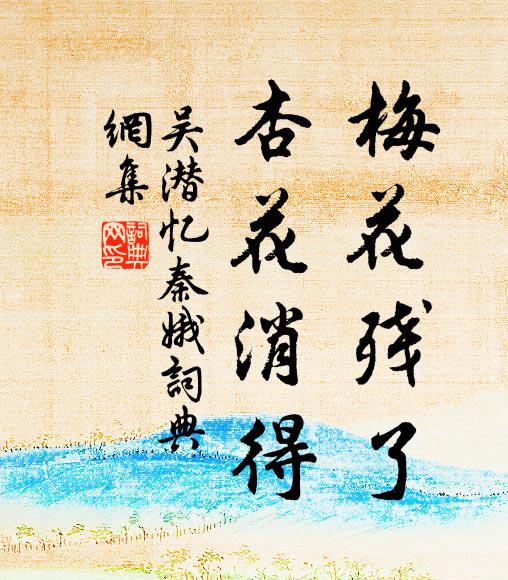 梅花残了
杏花消得
吴潜忆秦娥詞典
網集
詞典
网印